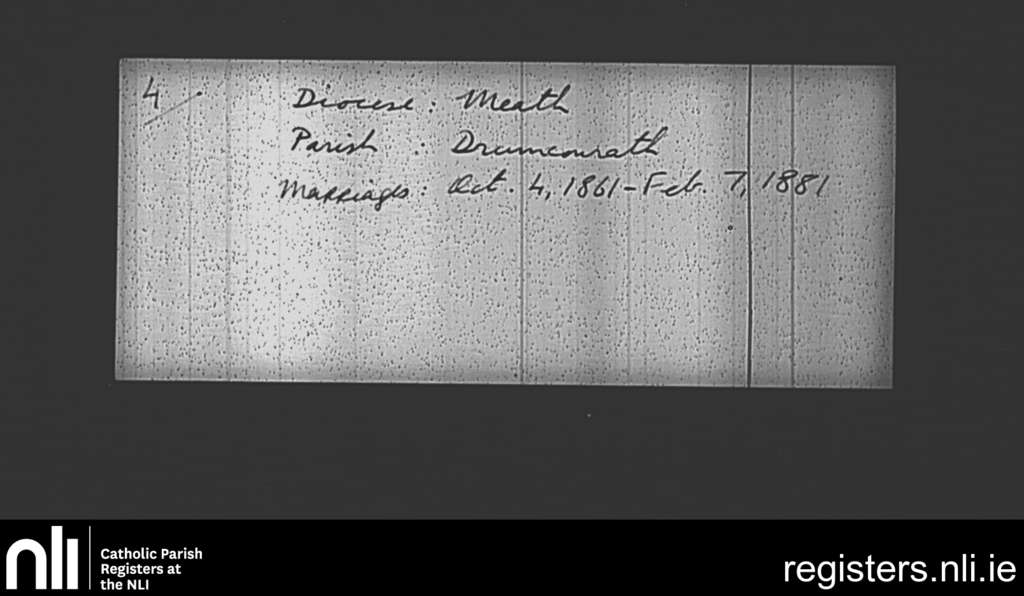 4
Diocese : Meath
Parish : Drumconrath
Marriages : Oct. 4, 1861 - Feb. 7, 1881
nli
Catholic Parish
Registers at
the NLI
registers.nli.ie